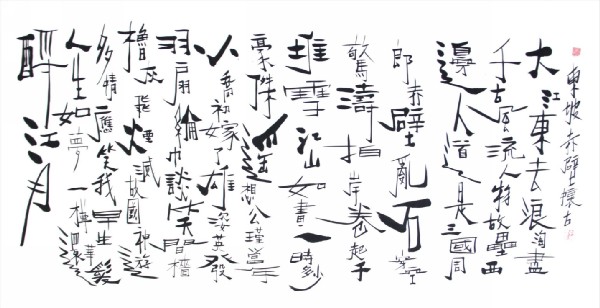 東坡赤壁懷古
大江東去浪淘盡
千古風流人物故壘西
邊人道是三國周
郎赤壁亂石穿空
驚濤拍岸卷起千
堆雪江山如畫一時多少
豪傑遙想公瑾當年
小喬初嫁了雄姿英發
羽扇綸巾談笑間檣
櫓灰飛煙滅故國神遊
多情應笑我早生華髮
人生如夢一樽還
酹江月